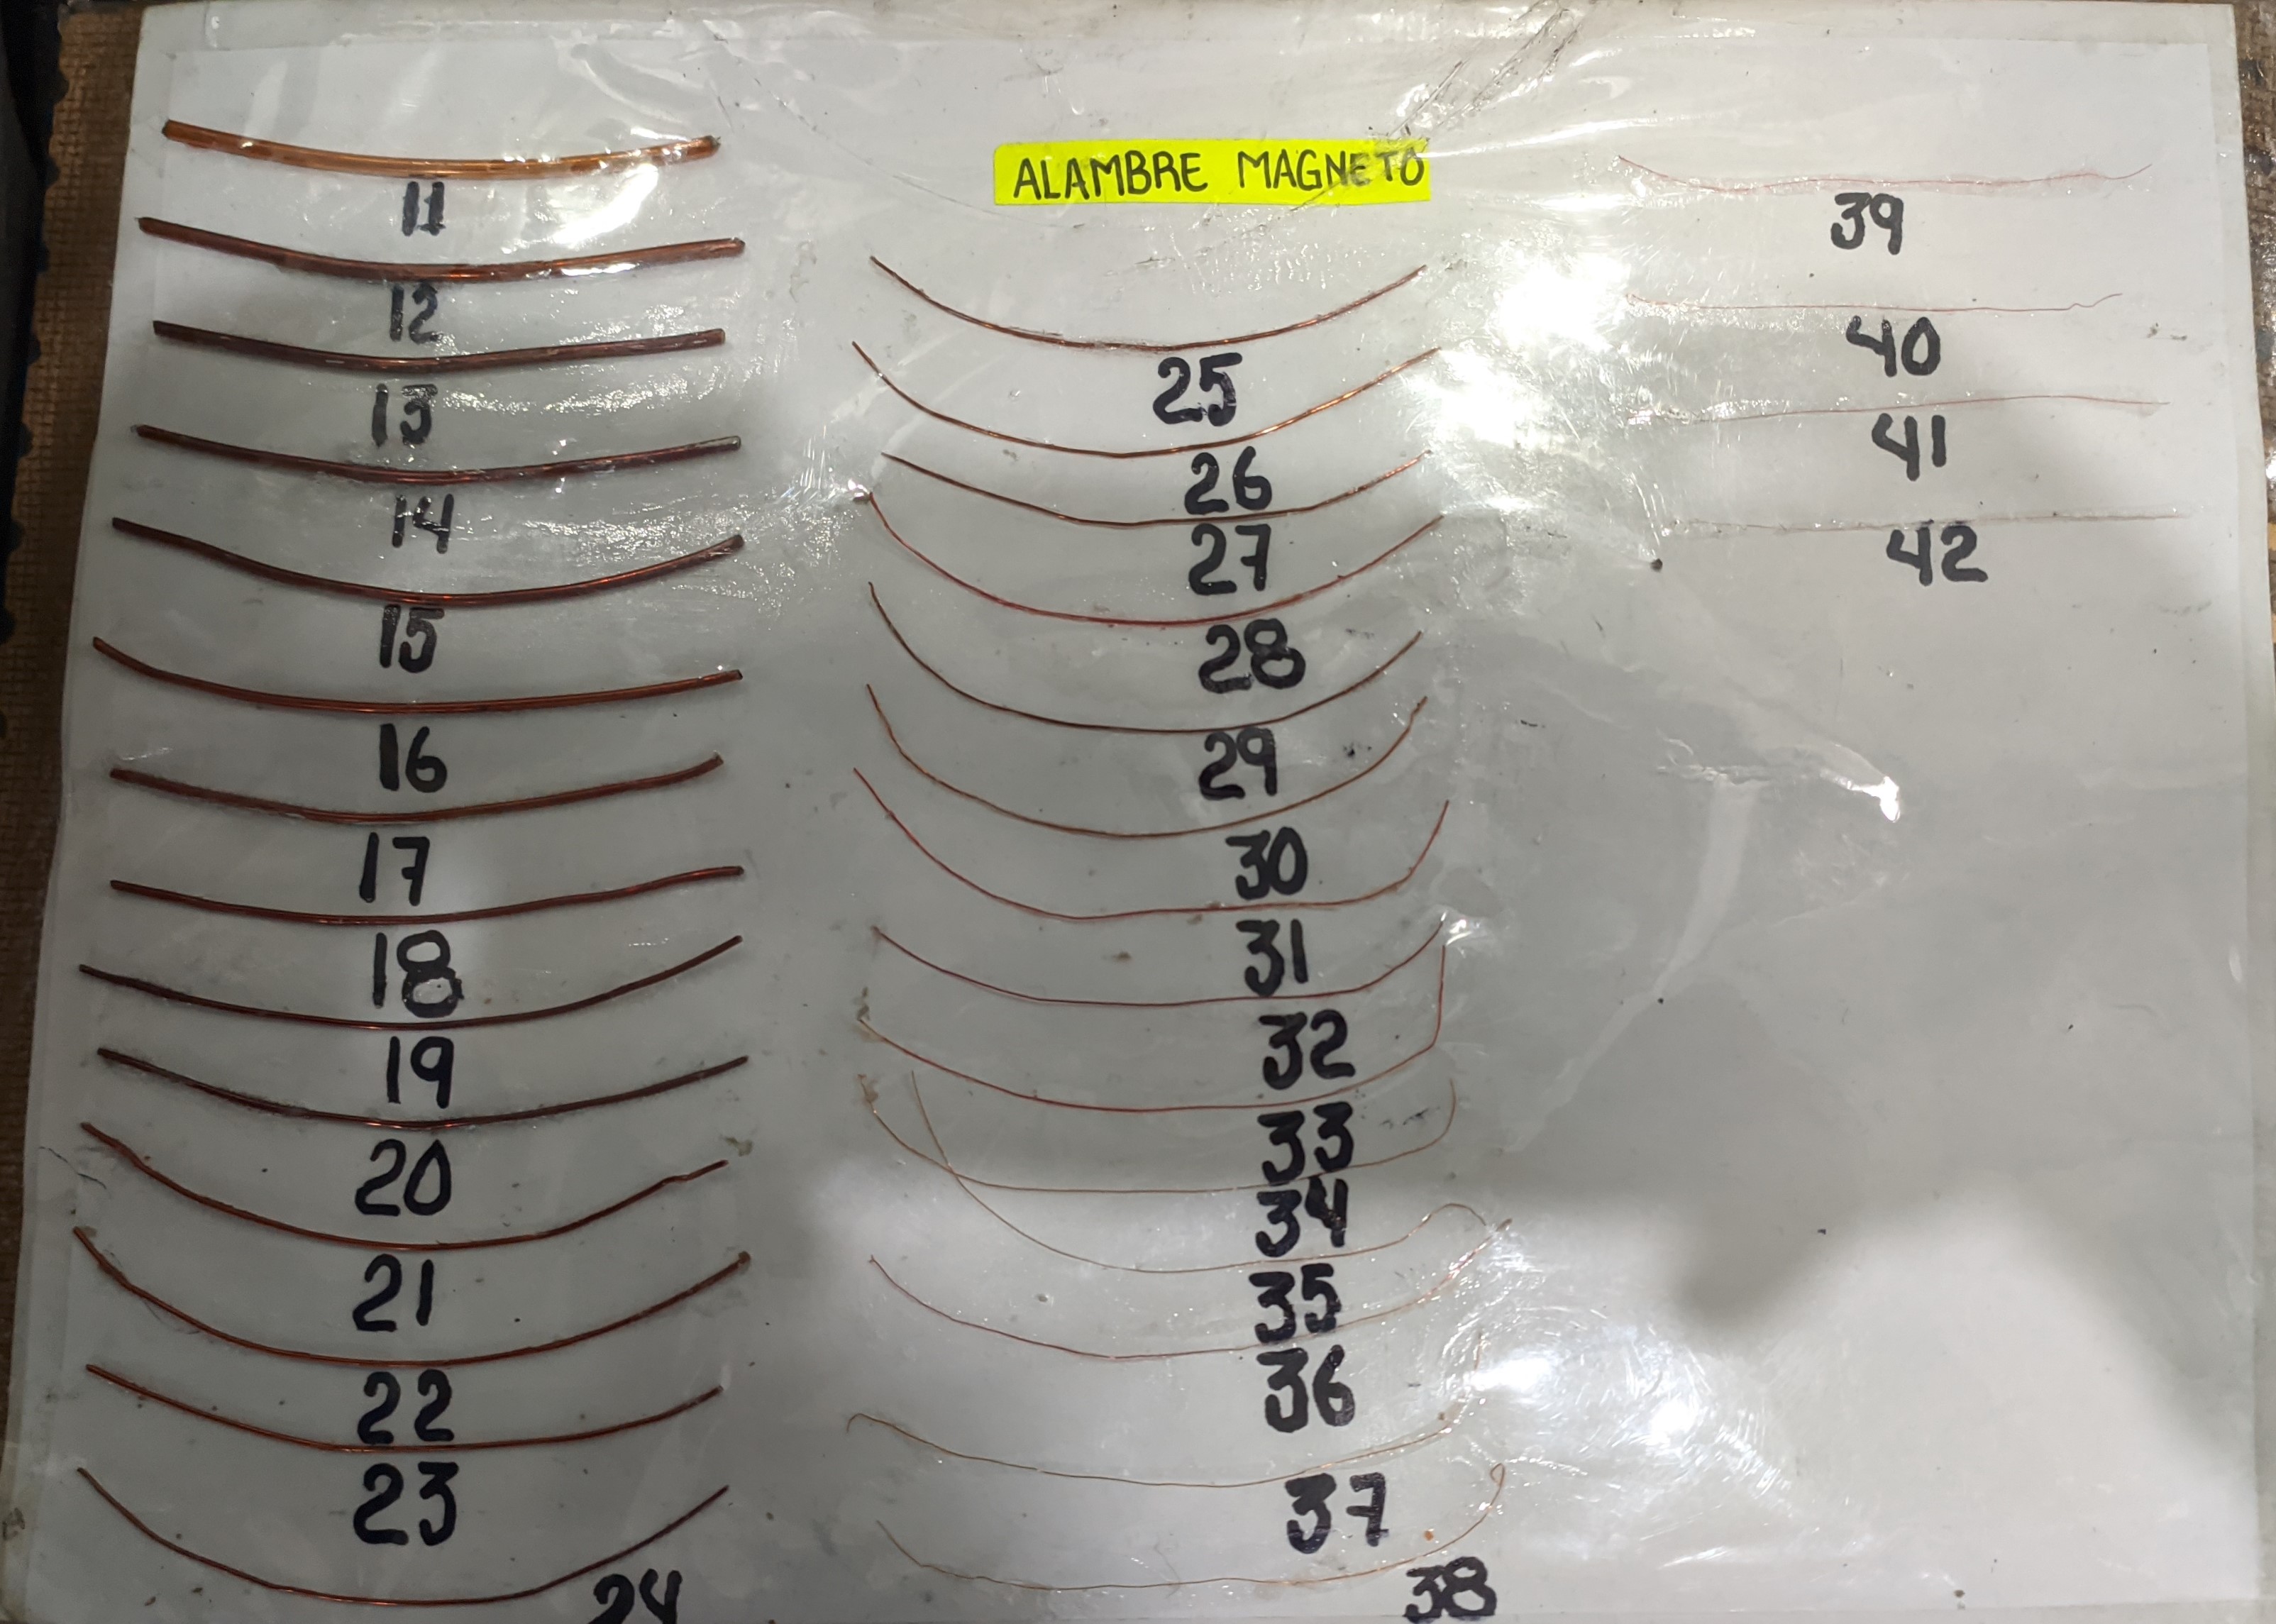 ALAMBRE MAGNETO
11
12
13
14
15
16
17
18
19
20
21
22
23
24
25
26
27
28
29
30
31
32
33
34
35
36
37
38
39
40
41
42